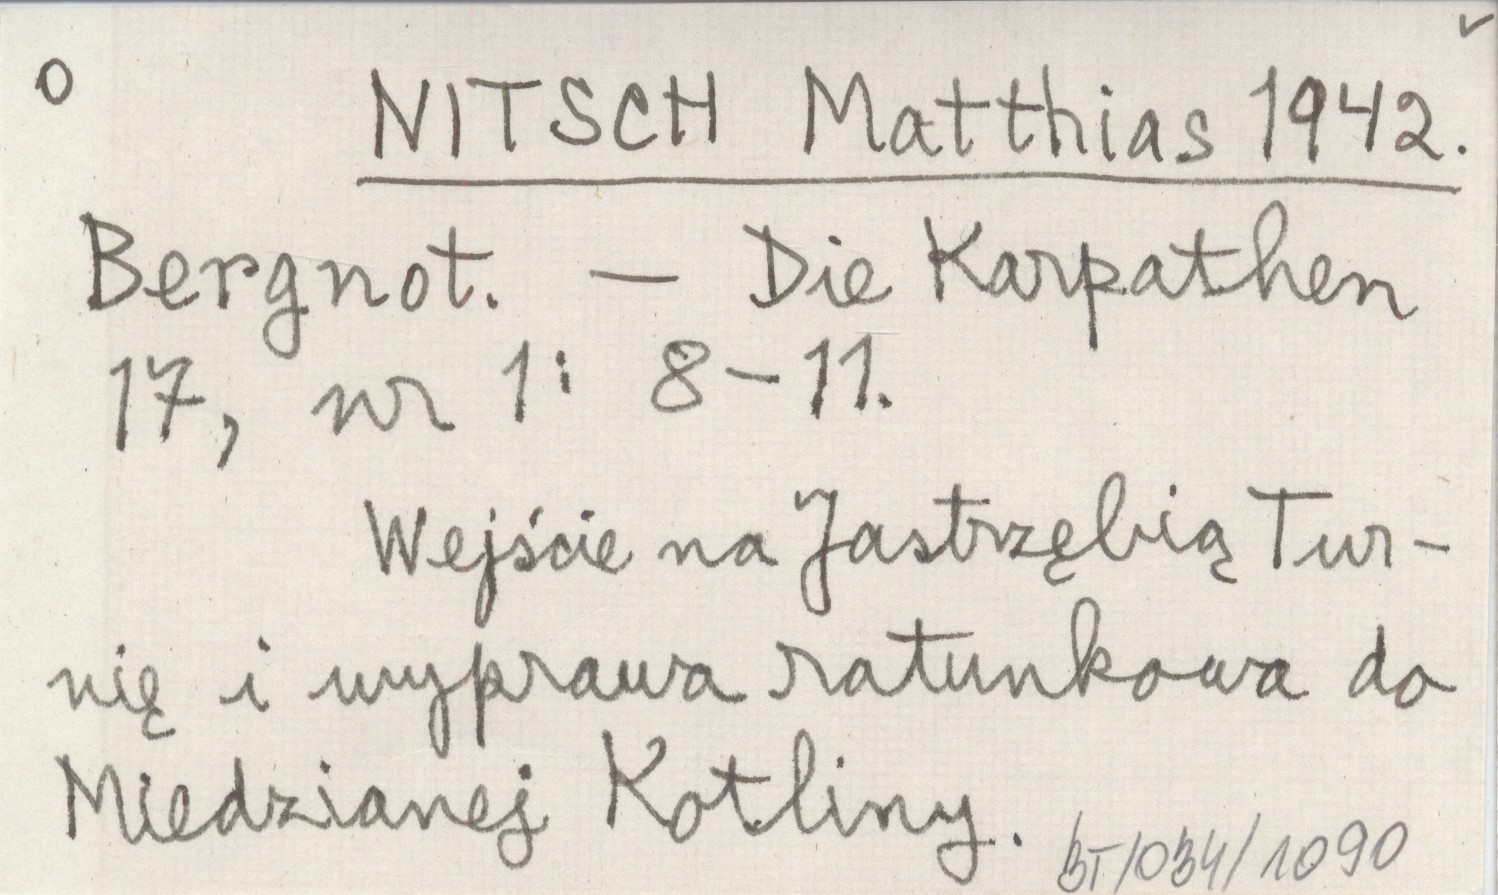 O NITSCH Matthias 1942.
Bergnot. — Die Karpathen
17, nr 1: 8-11.
Wejście na Jastrzębią Tur-
nię i wyprawa ratunkowa do
Miedzianej Kotliny.
BT/034/1090